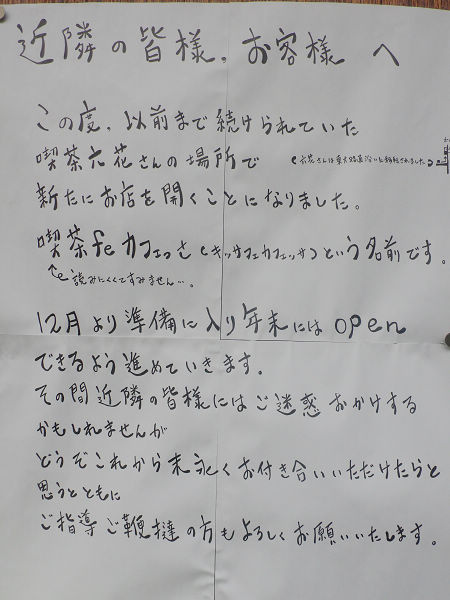 近隣の皆様、お客様 へ
この度、以前まで続けられていた
喫茶六花さんの場所で
新たにお店を開くことになりました。
喫茶feカフェっさ<キッサフェカフェッサ>という名前です。
↑読みにくくてすみません…。
12月より準備に入り年末には open
できるよう進めていきます。
その間近隣の皆様にはご迷惑おかけする
かもしれませんが
どうぞこれから末永くお付き合いいただけたらと
思うとともに
ご指導ご鞭撻の方もよろしくお願いいたします。